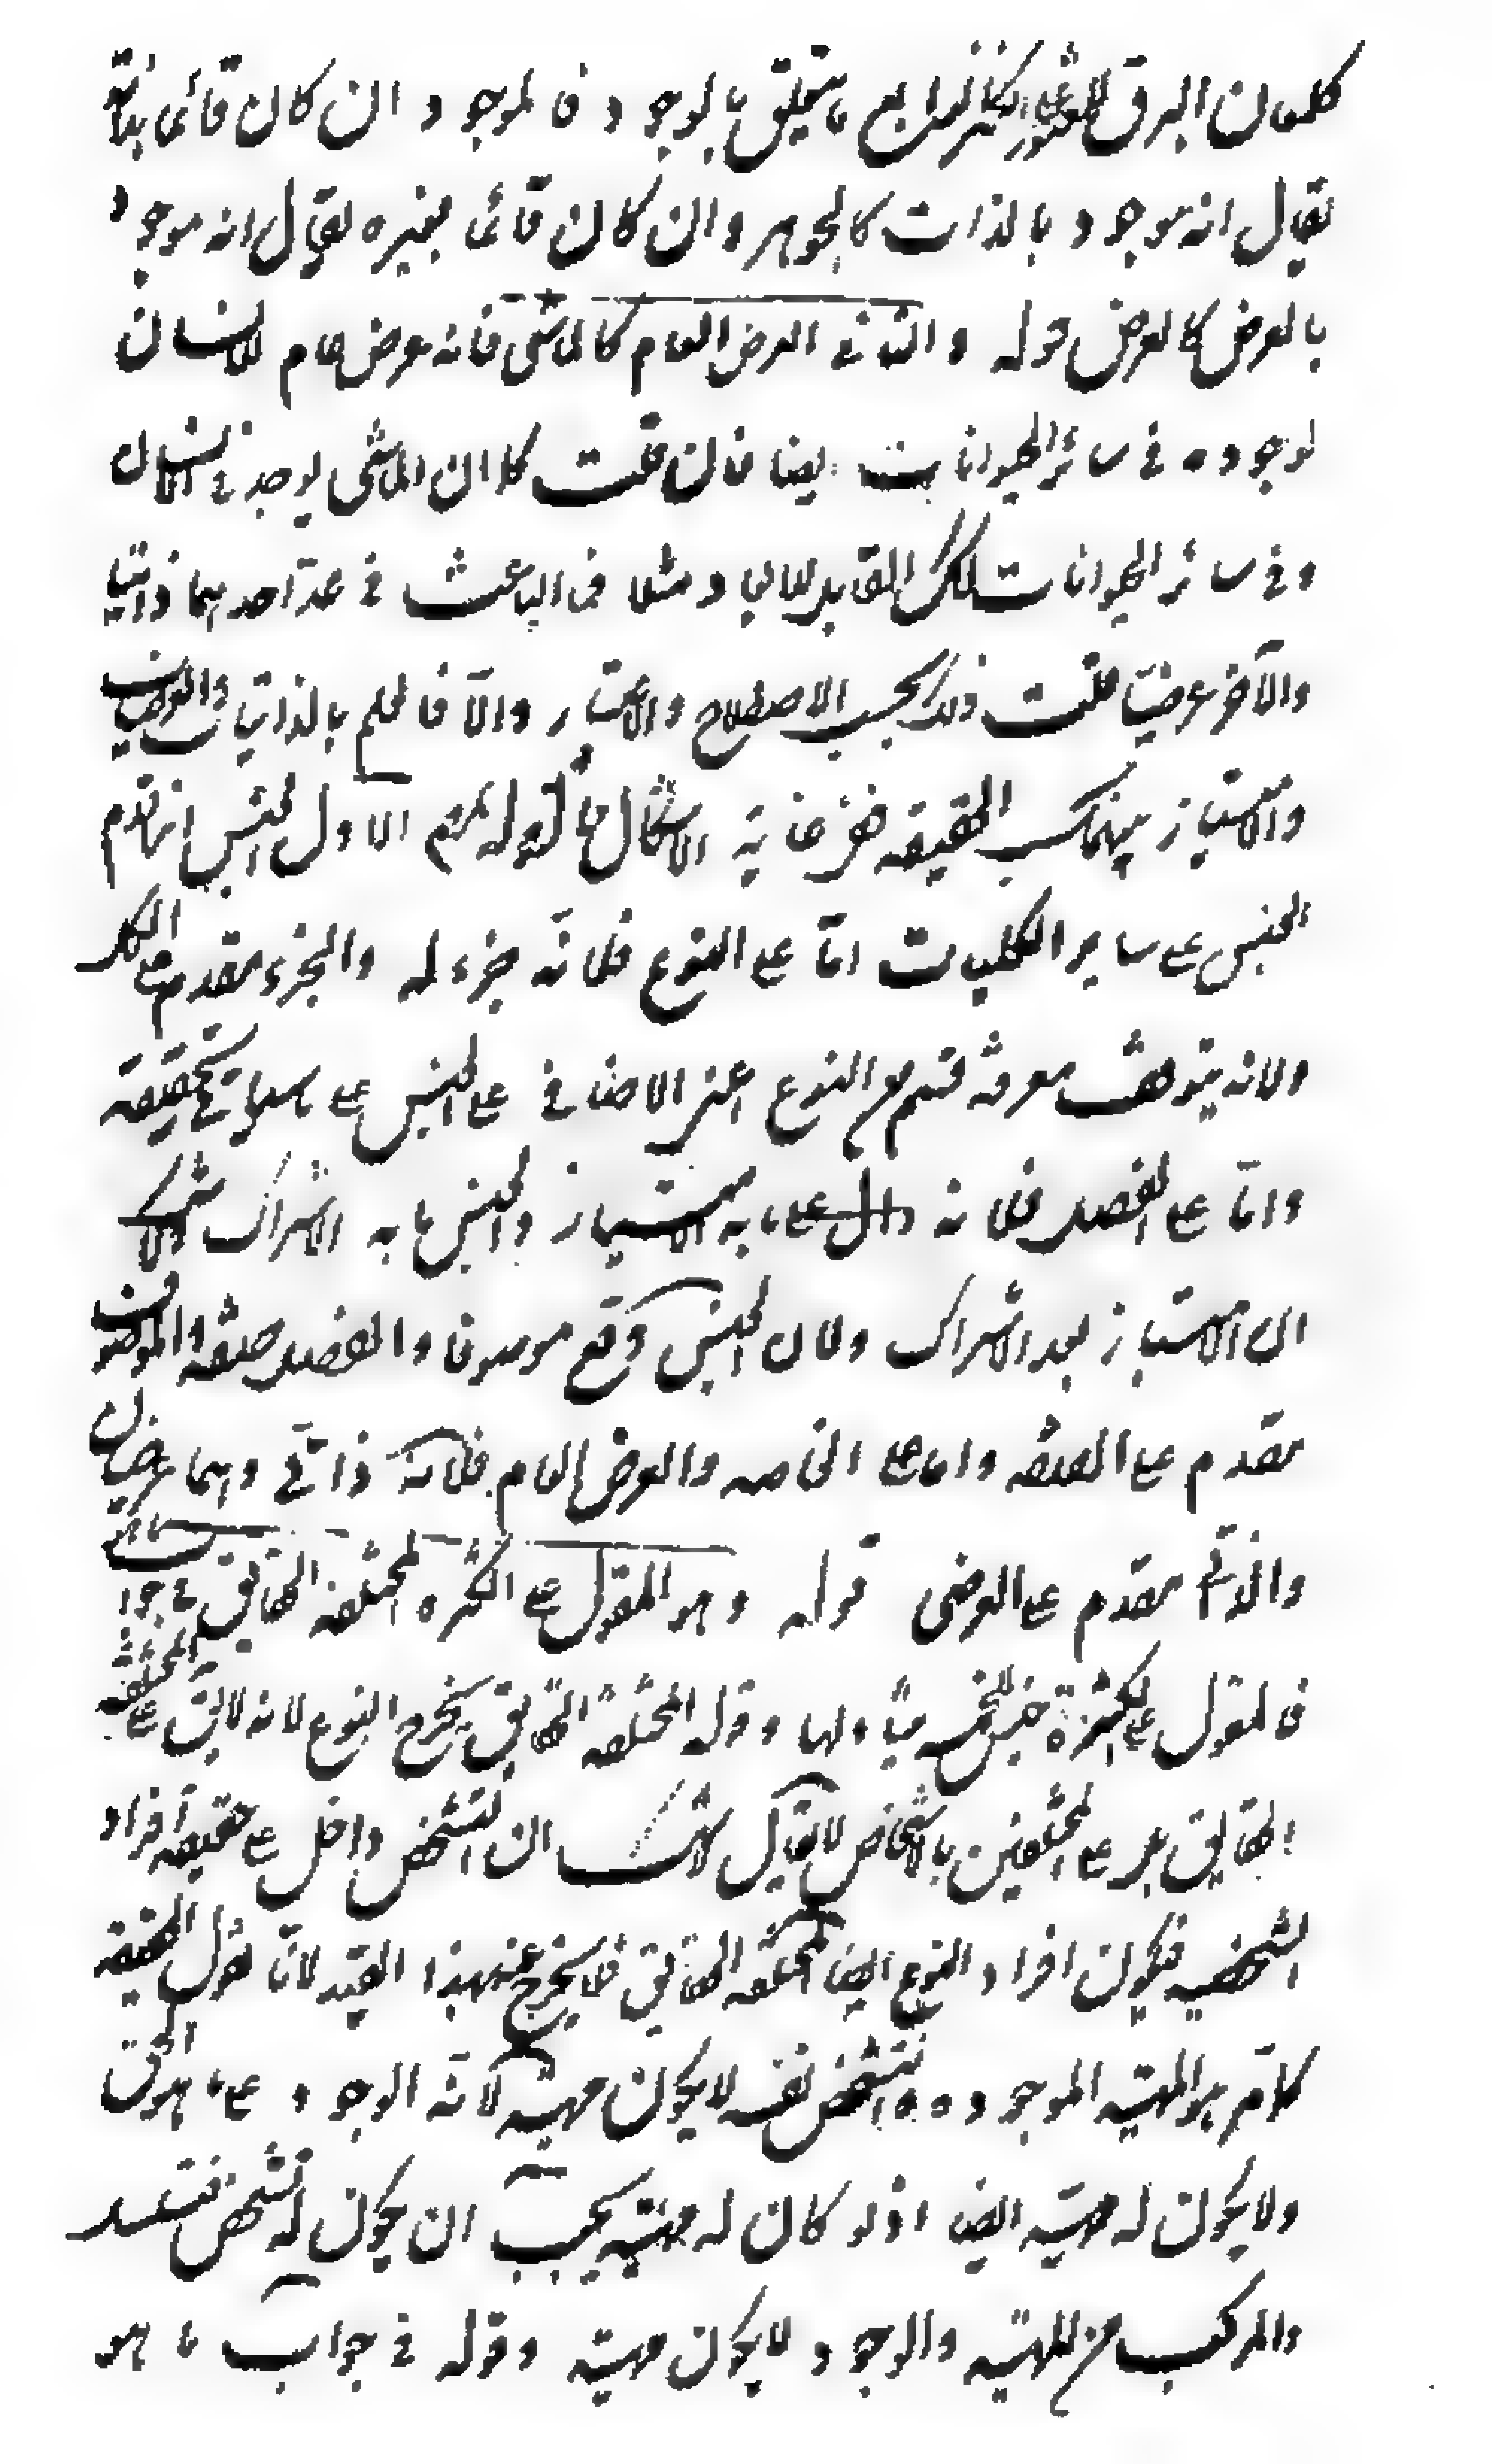 كلمعان البرق الرابع ما يتعلق بالوجود فالموجود ان كان قائما بذاته
يقال انه موجود بالذات كالجوهر وان كان قائما بغيره يقال انه موجود
بالعرض كالعرض قوله والثاني العرض العام كالماشي فانه عرض عام للانسان
لوجوده في سائر الحيوانات ايضا فان قلت كما ان الماشي يوجد في الانسان
وفي سائر الحيوانات كذلك القابل للابعاد مثلا فما الباعث في عد احدهما ذاتيا
والآخر عرضيا قلت ذلك بحسب الاصطلاح والاعتبار والا فالعلم بالذاتيات والعرضيات
والامتياز بينهما بحسب الحقيقة في غاية الاشكال قوله الاول الجنس انما قدم
الجنس على ساير الكليات اما على النوع فلانه جزء له والجزء مقدم على الكل
ولانه يتوقف معرفة قسم من النوع اعني الاضافي على الجنس على ما سياتي تحقيقه
واما على الفصل فلانه دال على ما به الامتياز والجنس ما به الاشتراك
ان الامتياز بعد الاشتراك ولان الجنس وقع موصوفا والفصل صفة والموصوف
مقدم على الصفة واما على الخاصه والعرض العام فلانه ذاتي وهما عرضيان
والذاتي مقدم على العرضي قوله وهو المقول على الكثرة المختلفة الحقايق في جواب ما هو
فالمقول على الكثرة جنس للخمسه يتناولها وقوله المختلفة الحقايق يخرج النوع لانه لا يقال على المختلفة
الحقايق بل على المختلفين بالاشخاص لا يقال لا شك ان التشخص داخل على حقيقة افراد
الشخصيه فيكون افراد النوع ايضا مختلفة الحقايق فلا يخرج عنه بهذا القيد لانا نقول الحقيقة
كلام هو المهيته الموجوده والتشخص نفسه لا يكون مهيته لانه الوجود على ما هو الحق
ولا يكون له مهيته ايضا اذ لو كان له مهيته يجب ان يكون له تشخص فيتسلسل
والمركب من المهيته والوجود لا يكون مهيته وقوله في جواب ما هو